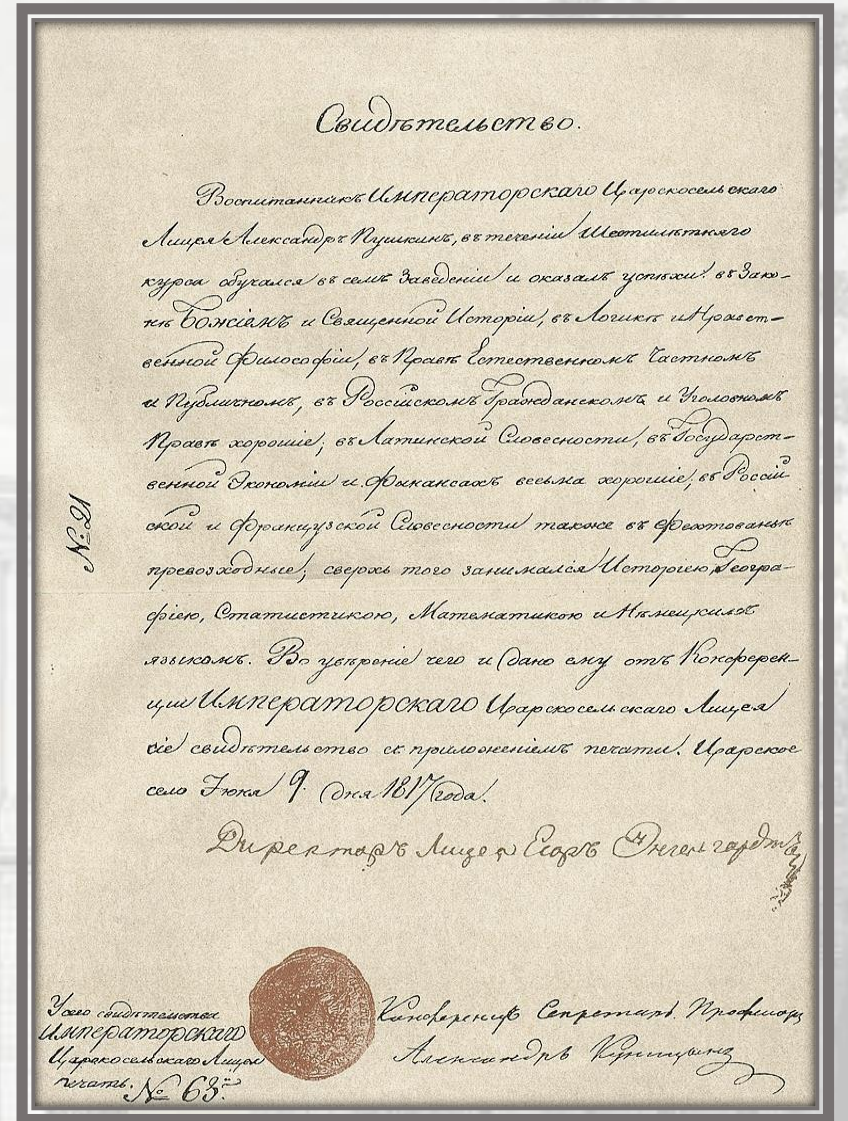 Свидѣтельство.
Воспитанникъ Императорскаго Царскосельскаго
Лицея Александръ Пушкинъ, въ теченіи шестилѣтняго
курса обучался въ семъ Заведеніи и оказалъ успѣхи: въ Зако-
нѣ Божіемъ и Священной Исторіи, въ Логикѣ и Нравст-
венной Философіи, въ Правѣ Естественномъ Частномъ
и Публичномъ, въ Россійскомъ Гражданскомъ и Уголовномъ
Правѣ хорошіе; въ Латинской Словесности, въ Государст-
венной Экономіи и Финансахъ весьма хорошіе, въ Россій
ской и Французской Словесности также въ Фехтованьи
превозходные; сверхъ того занимался Исторіею, Геогра-
фіею, Статистикою, Математикою и Нѣмецкимъ
языкомъ. Во увѣреніе чего и дано ему отъ Конферен-
ціи Императорскаго Царскосельскаго Лицея
сіе свидѣтельство съ приложеніемъ печати. Царское
село Іюня 9. дня 1817 года.
Директоръ Лицея Егоръ Энгельгардтъ
№ 21
У сего свидѣтельства
Императорскаго
Царскосельскаго Лицея
печать. № 63.
Конференцъ Секретарь Профессоръ
Александръ Куницынъ